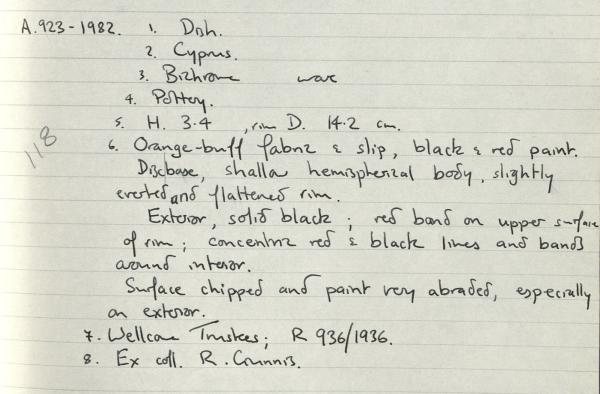 A.923-1982. 1. Dish.
2. Cyprus.
3. Bichrome ware
4. Pottery.
5. H. 3.4 , rim D. 14.2 cm.
118
6. Orange-buff fabric & slip, black & red paint.
Discbase, shallow hemispherical body, slightly
everted and flattened rim.
Exterior, solid black ; red band on upper surface
of rim ; concentric red & black lines and bands
around interior.
Surface chipped and paint very abraded, especially
on exterior.
7. Wellcome Trustees; R 936/1936.
8. Ex coll. R. Gunnis.